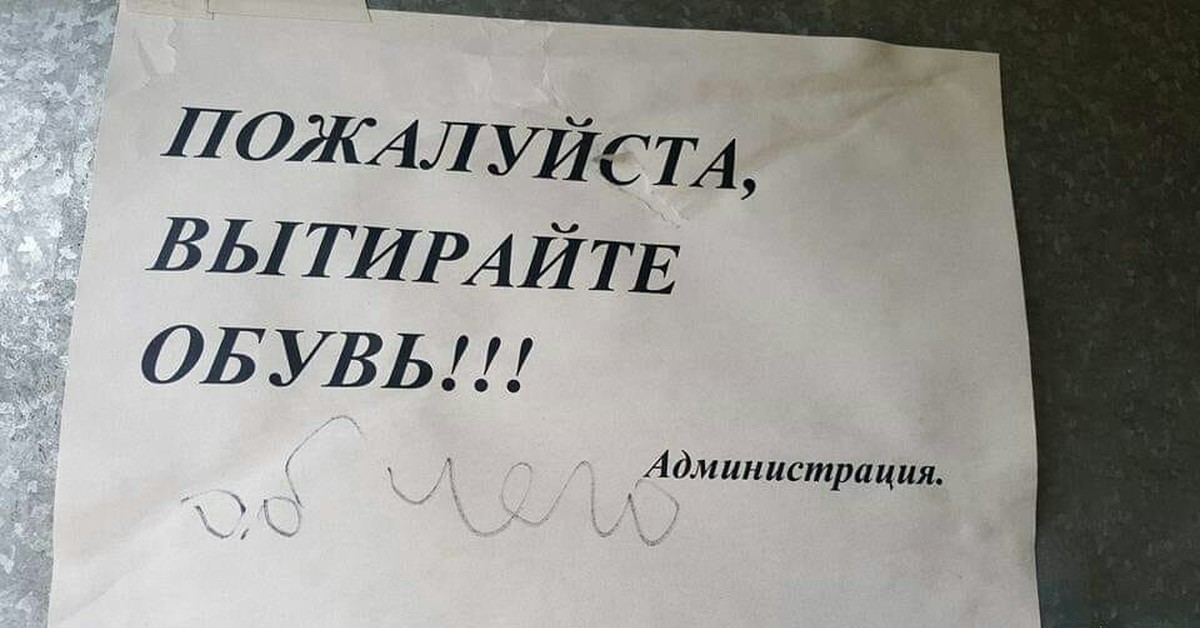 ПОЖАЛУЙСТА,
ВЫТИРАЙТЕ
ОБУВЬ!!!
Администрация.
об чего